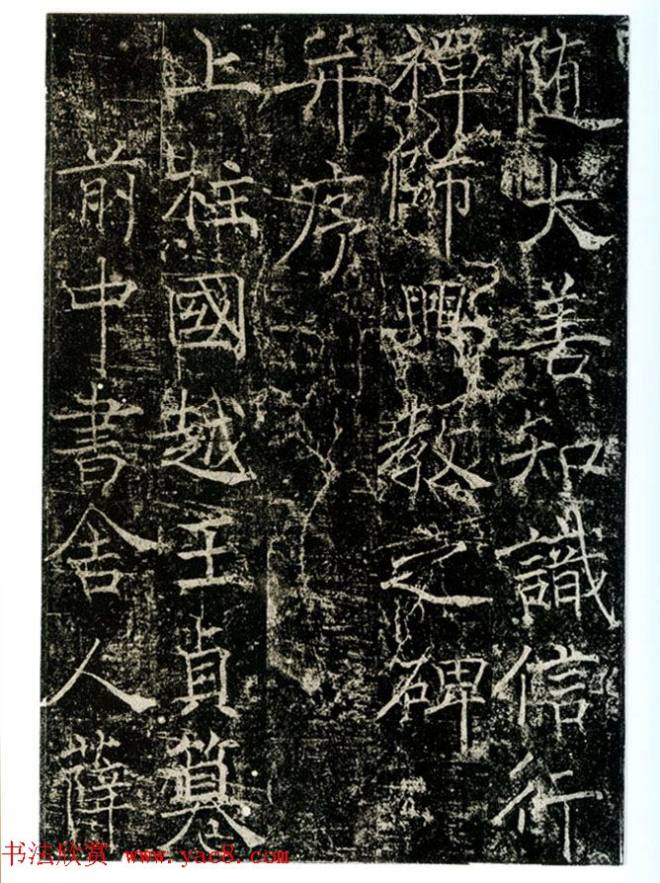 随大善知識信行
禪師興教之碑
并序
上柱國越王貞篹
前中書舍人薛
书法欣赏 www.yac8.com